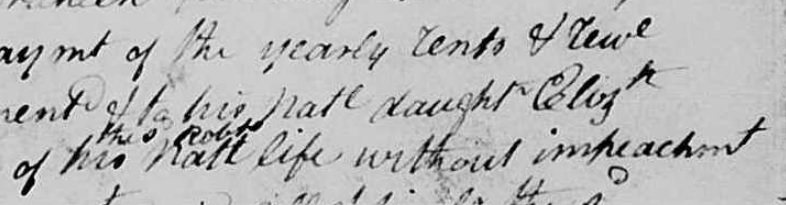 aymt of the yearly rents & reve
nent & to his Natl daughtr Elizth
the sd Robts
of his Natl life without impeachmt